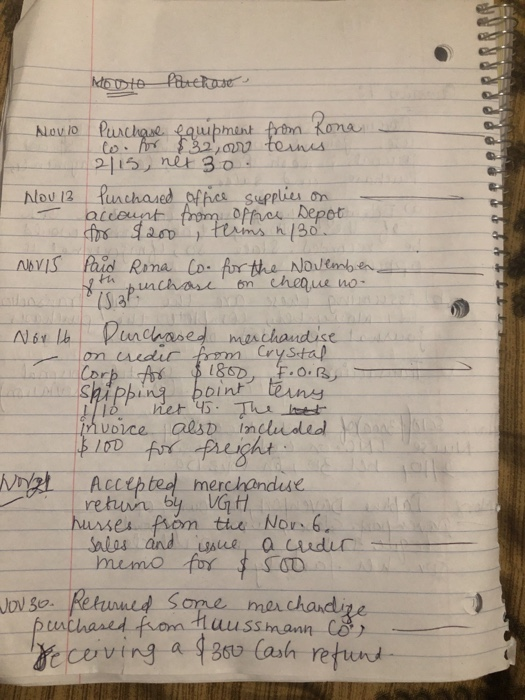 Nov 10 Purchase.
Nov 10 Purchase equipment from Rona
Co. for $32,000 terms
2/15, net 30.
Nov 13 Purchased office supplies on
account from Office Depot
for $200, terms n/30.
Nov 15 Paid Rona Co. for the November
8th purchase on cheque no.
Nov 16 Purchased merchandise
on credit from Crystal
Corp for $1800, F.O.B,
Shipping point terms
1/10 net 45. The net
invoice also included
$100 for freight.
Nov 21 Accepted merchandise
return by VGH
nurses from the Nov. 6.
Sales and issue a credit
memo for $500
Nov 30. Returned some merchandize
purchased from Haussmann Co.,
receiving a $300 Cash refund.